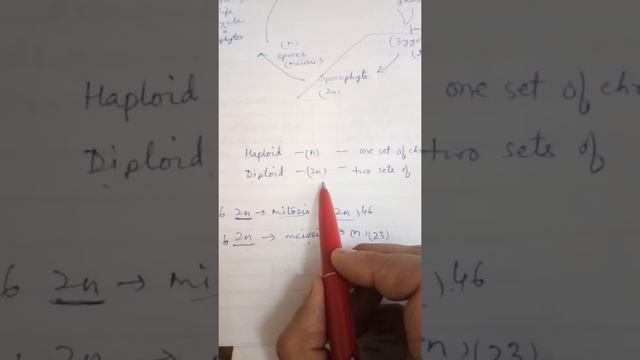 life
cycle
(n)
spores
(meiosis)
Sporophyte
(2n)
Haploid — (n) — one set of
Diploid — (2n) — two sets of
6 2n → mitosis 2n, 46
6 2n → meiosis → (n) (23)